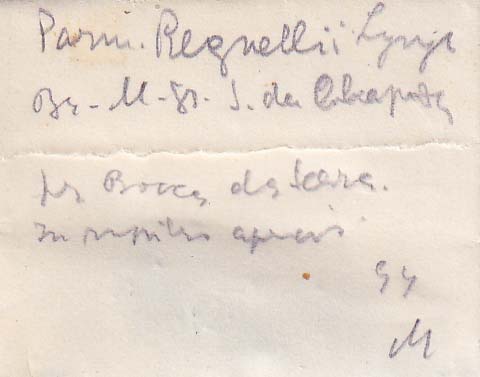 Parm. Regnellii Lynge
Br. - M. Gr. S. da Chapada
pr Bocca da Serra.
In rupibus apricis
94
M